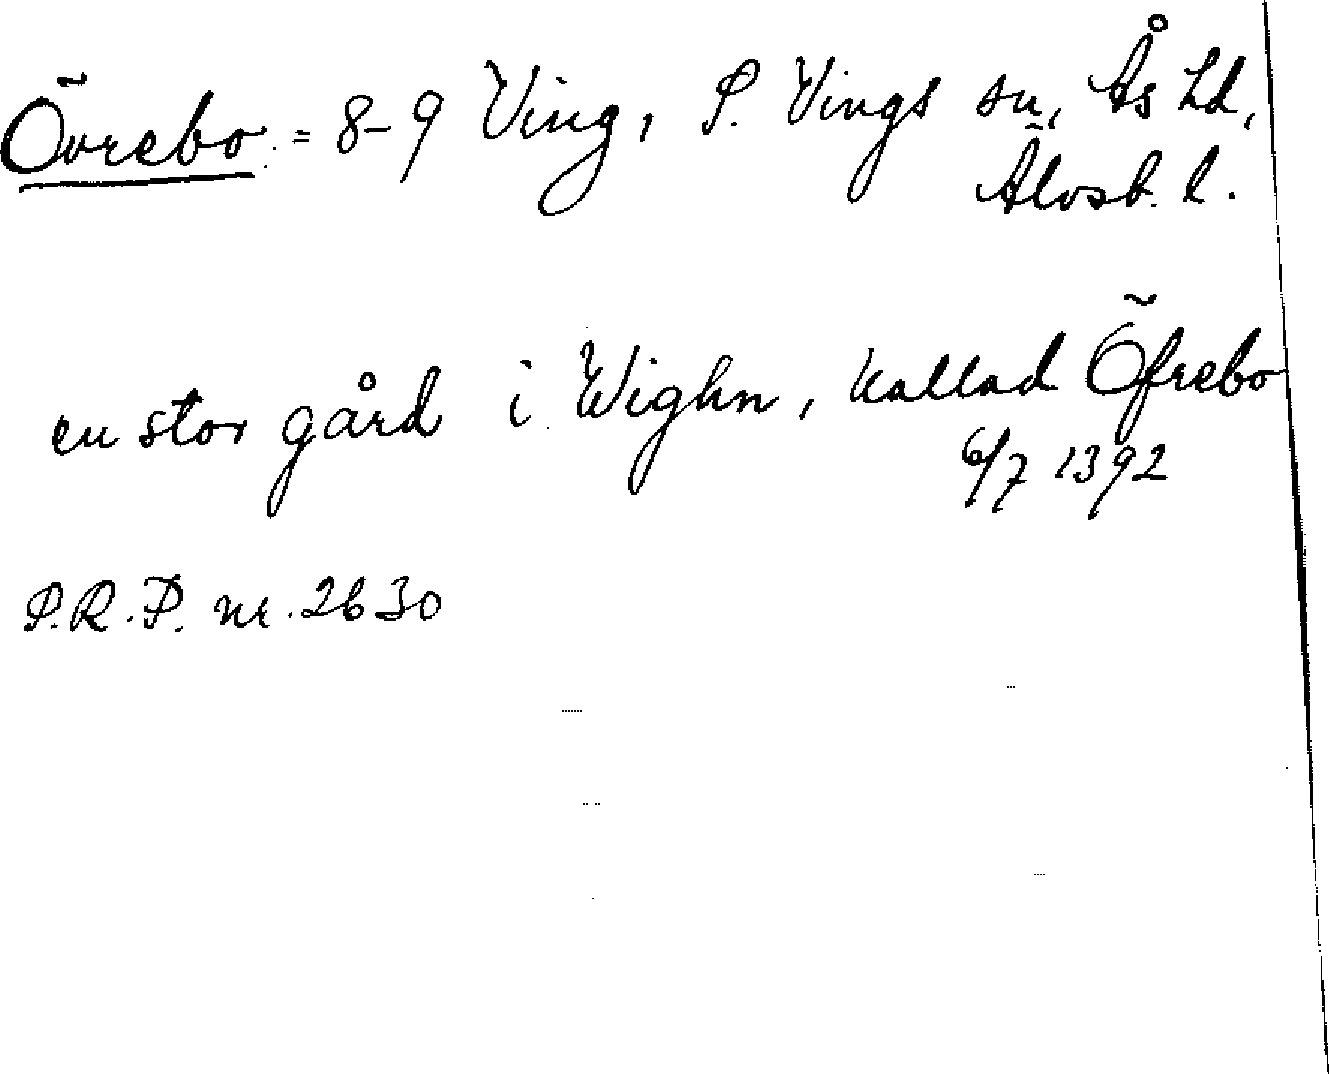 Övrebo = 8-9 Ving, S. Vings sn, Ås hd,
Älvsb. l.
en stor gård i Wighn, kallad Öfrebo
6/7 1392
S.R.P. nr. 2630